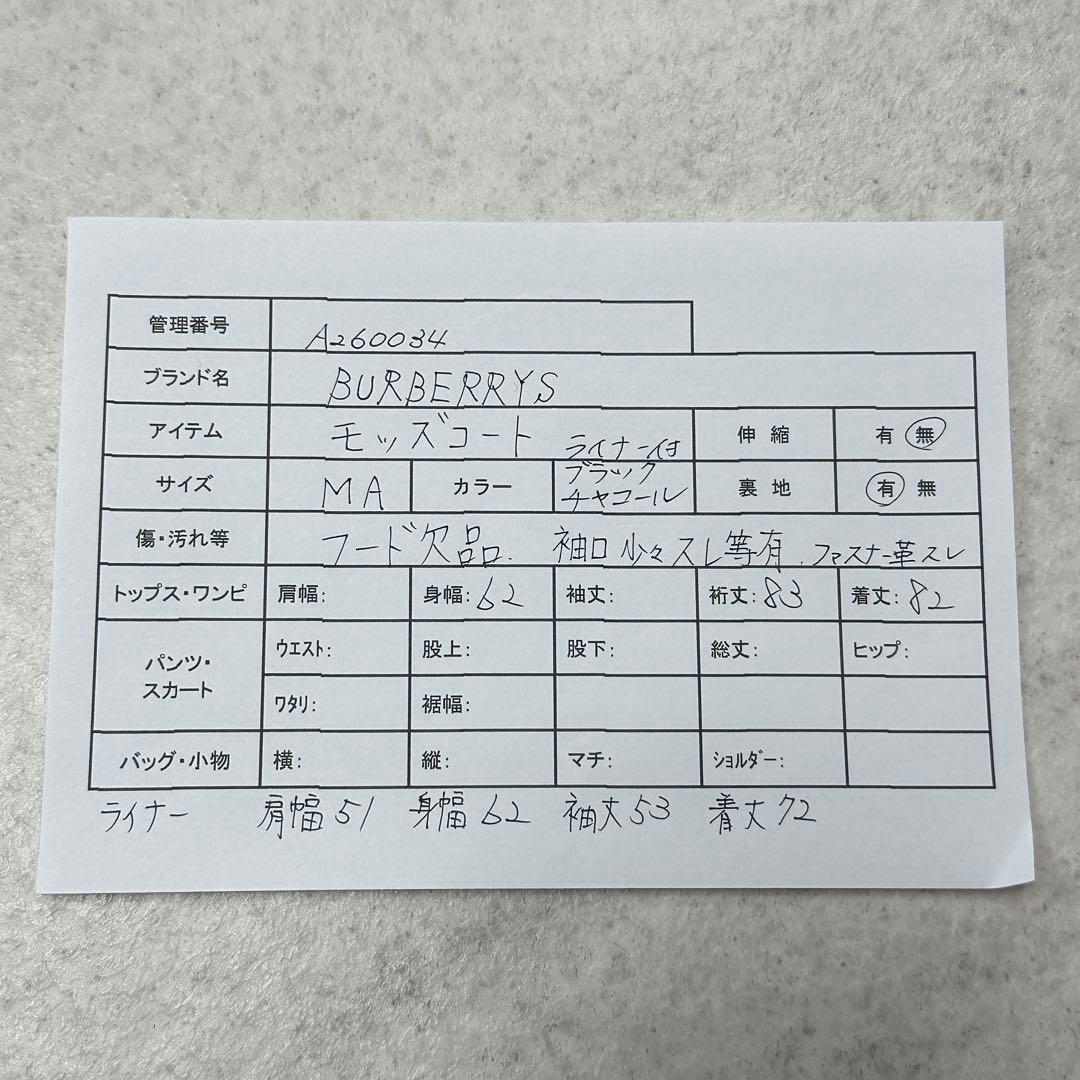 管理番号 A260034
ブランド名 BURBERRYS
アイテム モッズコート ライナー付 伸縮 有 無
サイズ MA カラー ブラック チャコール 裏地 有 無
傷・汚れ等 フード欠品、袖口少々スレ等有、ファスナー革スレ
トップス・ワンピ 肩幅: 身幅:62 袖丈: 裄丈:83 着丈:82
パンツ・スカート ウエスト: 股上: 股下: 総丈: ヒップ:
ワタリ: 裾幅:
バッグ・小物 横: 縦: マチ: ショルダー:
ライナー 肩幅51 身幅62 袖丈53 着丈72